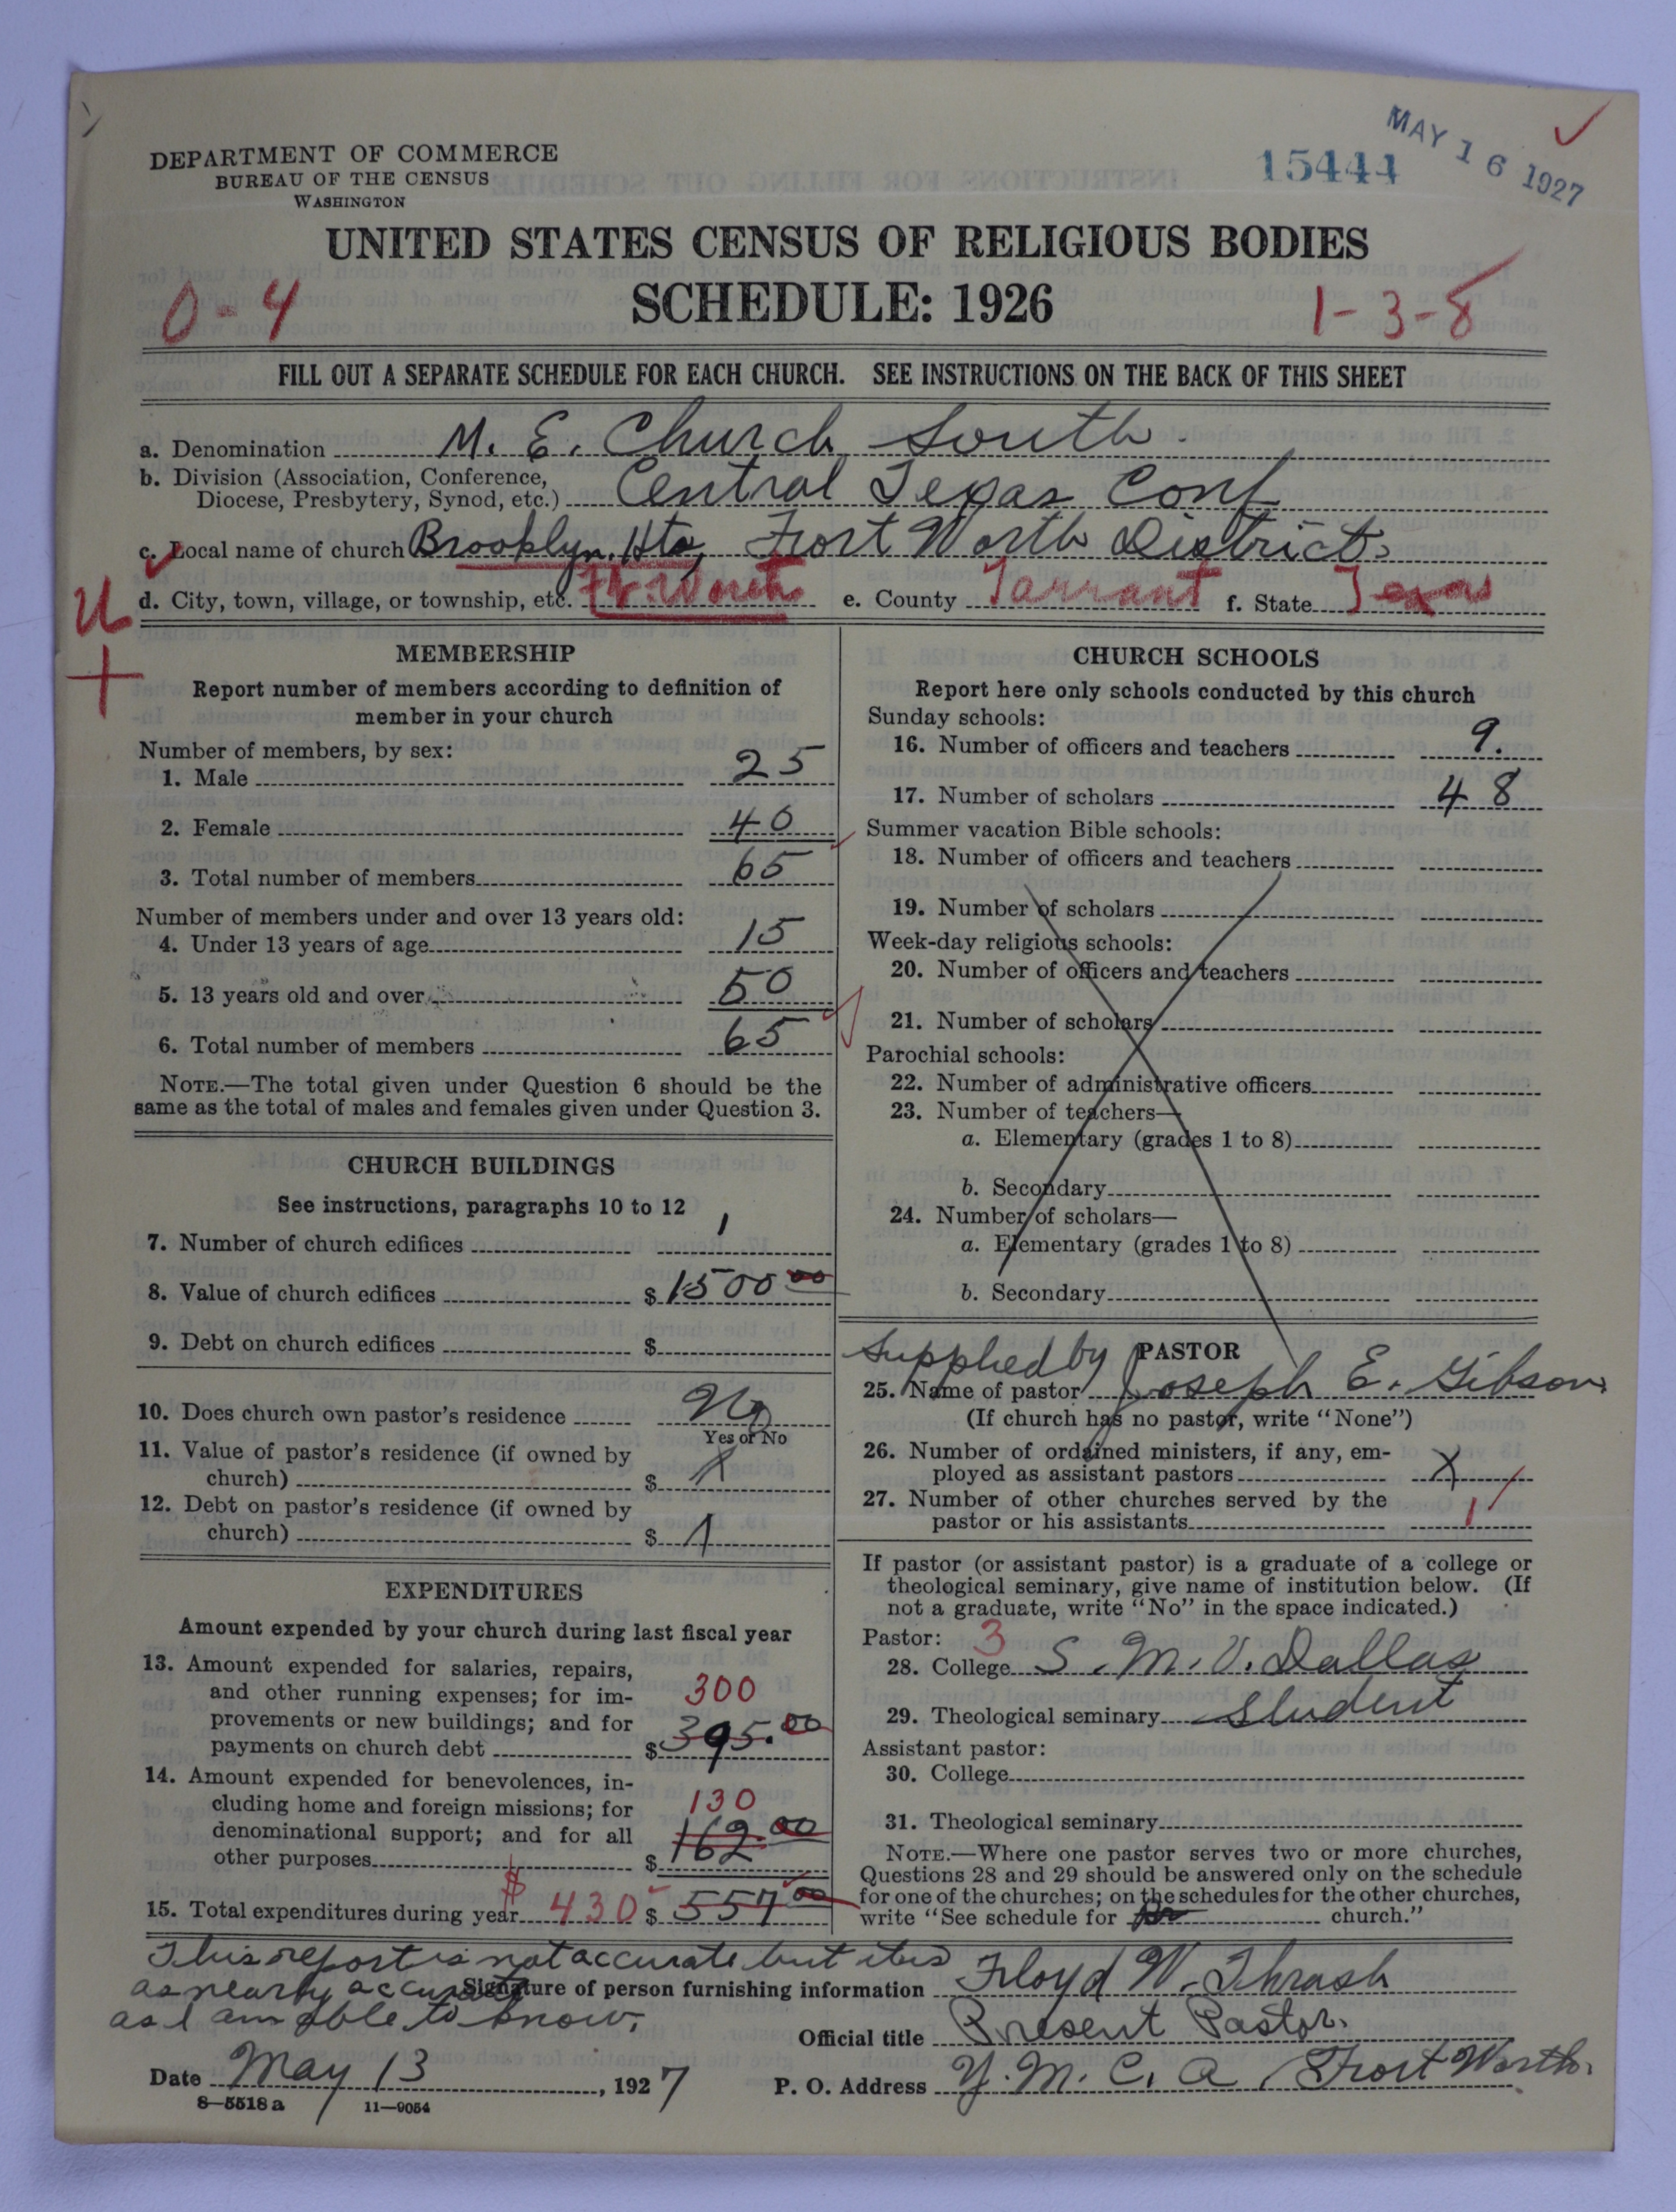 MAY 16 1927
15444
DEPARTMENT OF COMMERCE
BUREAU OF THE CENSUS
WASHINGTON
UNITED STATES CENSUS OF RELIGIOUS BODIES
SCHEDULE: 1926
0-4
1-3-8
FILL OUT A SEPARATE SCHEDULE FOR EACH CHURCH. SEE INSTRUCTIONS ON THE BACK OF THIS SHEET
a. Denomination M. E. Church South.
b. Division (Association, Conference,
Diocese, Presbytery, Synod, etc.) Central Texas Conf
c. Local name of church Brooklyn Hts, Fort Worth District.
d. City, town, village, or township, etc. Ft. Worth e. County Tarrant f. State Texas
MEMBERSHIP
Report number of members according to definition of
member in your church
Number of members, by sex:
1. Male 25
2. Female 40
3. Total number of members 65
Number of members under and over 13 years old:
4. Under 13 years of age 15
5. 13 years old and over 50
6. Total number of members 65
NOTE.—The total given under Question 6 should be the
same as the total of males and females given under Question 3.
CHURCH BUILDINGS
See instructions, paragraphs 10 to 12
7. Number of church edifices 1
8. Value of church edifices $ 1500 00
9. Debt on church edifices $
10. Does church own pastor's residence No
Yes or No
11. Value of pastor's residence (if owned by
church) $ X
12. Debt on pastor's residence (if owned by
church) $
EXPENDITURES
Amount expended by your church during last fiscal year
13. Amount expended for salaries, repairs,
and other running expenses; for im- 300
provements or new buildings; and for
payments on church debt $ 395.00
14. Amount expended for benevolences, in-
cluding home and foreign missions; for 130
denominational support; and for all
other purposes $ 162.00
15. Total expenditures during year $ 430 $ 557 00
CHURCH SCHOOLS
Report here only schools conducted by this church
Sunday schools:
16. Number of officers and teachers 9.
17. Number of scholars 48
Summer vacation Bible schools:
18. Number of officers and teachers
19. Number of scholars
Week-day religious schools:
20. Number of officers and teachers
21. Number of scholars
Parochial schools:
22. Number of administrative officers
23. Number of teachers—
a. Elementary (grades 1 to 8)
b. Secondary
24. Number of scholars—
a. Elementary (grades 1 to 8)
b. Secondary
Supplied by PASTOR
25. Name of pastor Joseph E. Gibson
(If church has no pastor, write "None")
26. Number of ordained ministers, if any, em-
ployed as assistant pastors X
27. Number of other churches served by the
pastor or his assistants 1
If pastor (or assistant pastor) is a graduate of a college or
theological seminary, give name of institution below. (If
not a graduate, write "No" in the space indicated.)
Pastor: 3
28. College S. M. U. Dallas
29. Theological seminary Student
Assistant pastor:
30. College
31. Theological seminary
NOTE.—Where one pastor serves two or more churches,
Questions 28 and 29 should be answered only on the schedule
for one of the churches; on the schedules for the other churches,
write "See schedule for church."
This report is not accurate but it is
as nearly accurate
as I am able to know.
Signature of person furnishing information Floyd W. Thrash
Official title Present Pastor.
Date May 13, 1927
P. O. Address Y. M. C. A, Fort Worth.
8—5518 a 11—9054